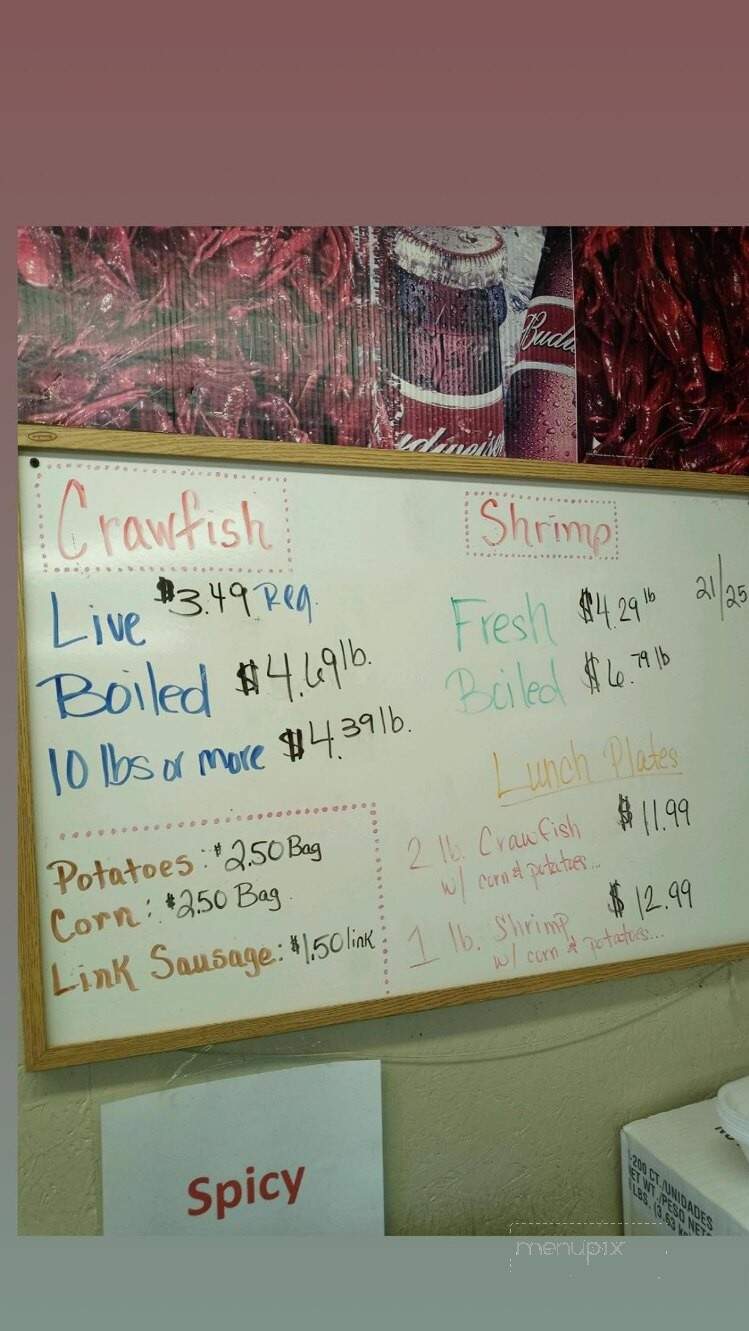 Budw
udweis
Crawfish
Live $3.49 Reg.
Boiled $4.69 lb.
10 lbs or more $4.39 lb.
Potatoes: $2.50 Bag
Corn: $2.50 Bag.
Link Sausage: $1.50 link
Shrimp
Fresh $4.29 lb 21/25
Boiled $6.79 lb
Lunch Plates
2 lb. Crawfish $11.99
w/ corn & potatoes...
1 lb. Shrimp $12.99
w/ corn & potatoes...
Spicy
-200 CT./UNIDADES
ET WT./PESO NETO
LBS. (3.63 K
menupix